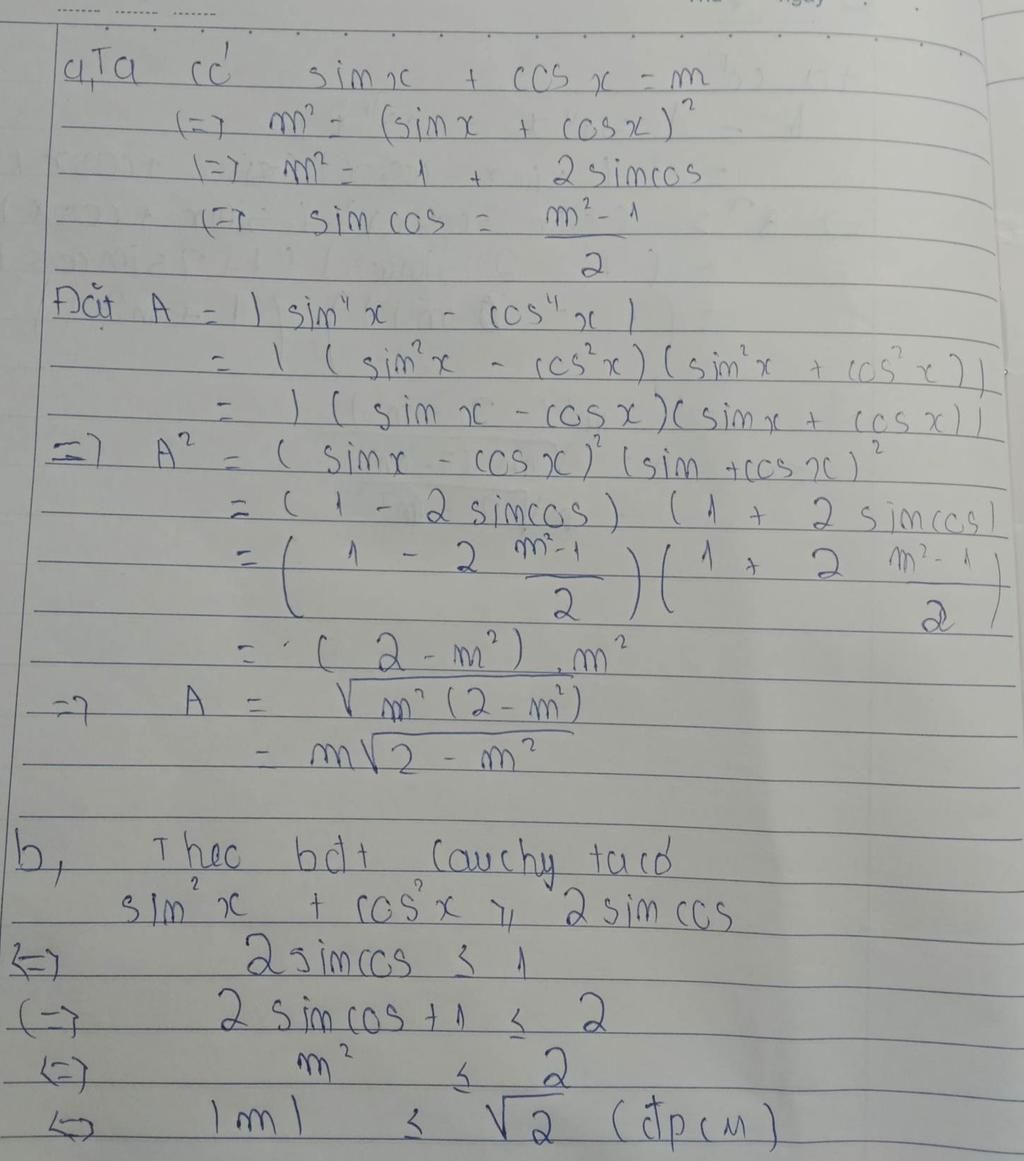 a, Ta có sin x + cos x = m
<=> m² = (sin x + cos x)²
<=> m² = 1 + 2 sin cos
<=> sin cos = (m² - 1)/2
Đặt A = | sin⁴x - cos⁴x |
= | (sin²x - cos²x)(sin²x + cos²x) |
= | (sin x - cos x)(sin x + cos x) |
=> A² = (sin x - cos x)² (sin + cos x)²
= (1 - 2 sin cos) (1 + 2 sin cos)
= (1 - 2 (m² - 1)/2) (1 + 2 (m² - 1)/2)
= (2 - m²) . m²
=> A = √(m² (2 - m²))
= m√(2 - m²)
b, Theo bdt Cauchy ta có
sin²x + cos²x ≥ 2 sin cos
<=> 2 sin cos ≤ 1
<=> 2 sin cos + 1 ≤ 2
<=> m² ≤ 2
<=> |m| ≤ √2 (đpcm)